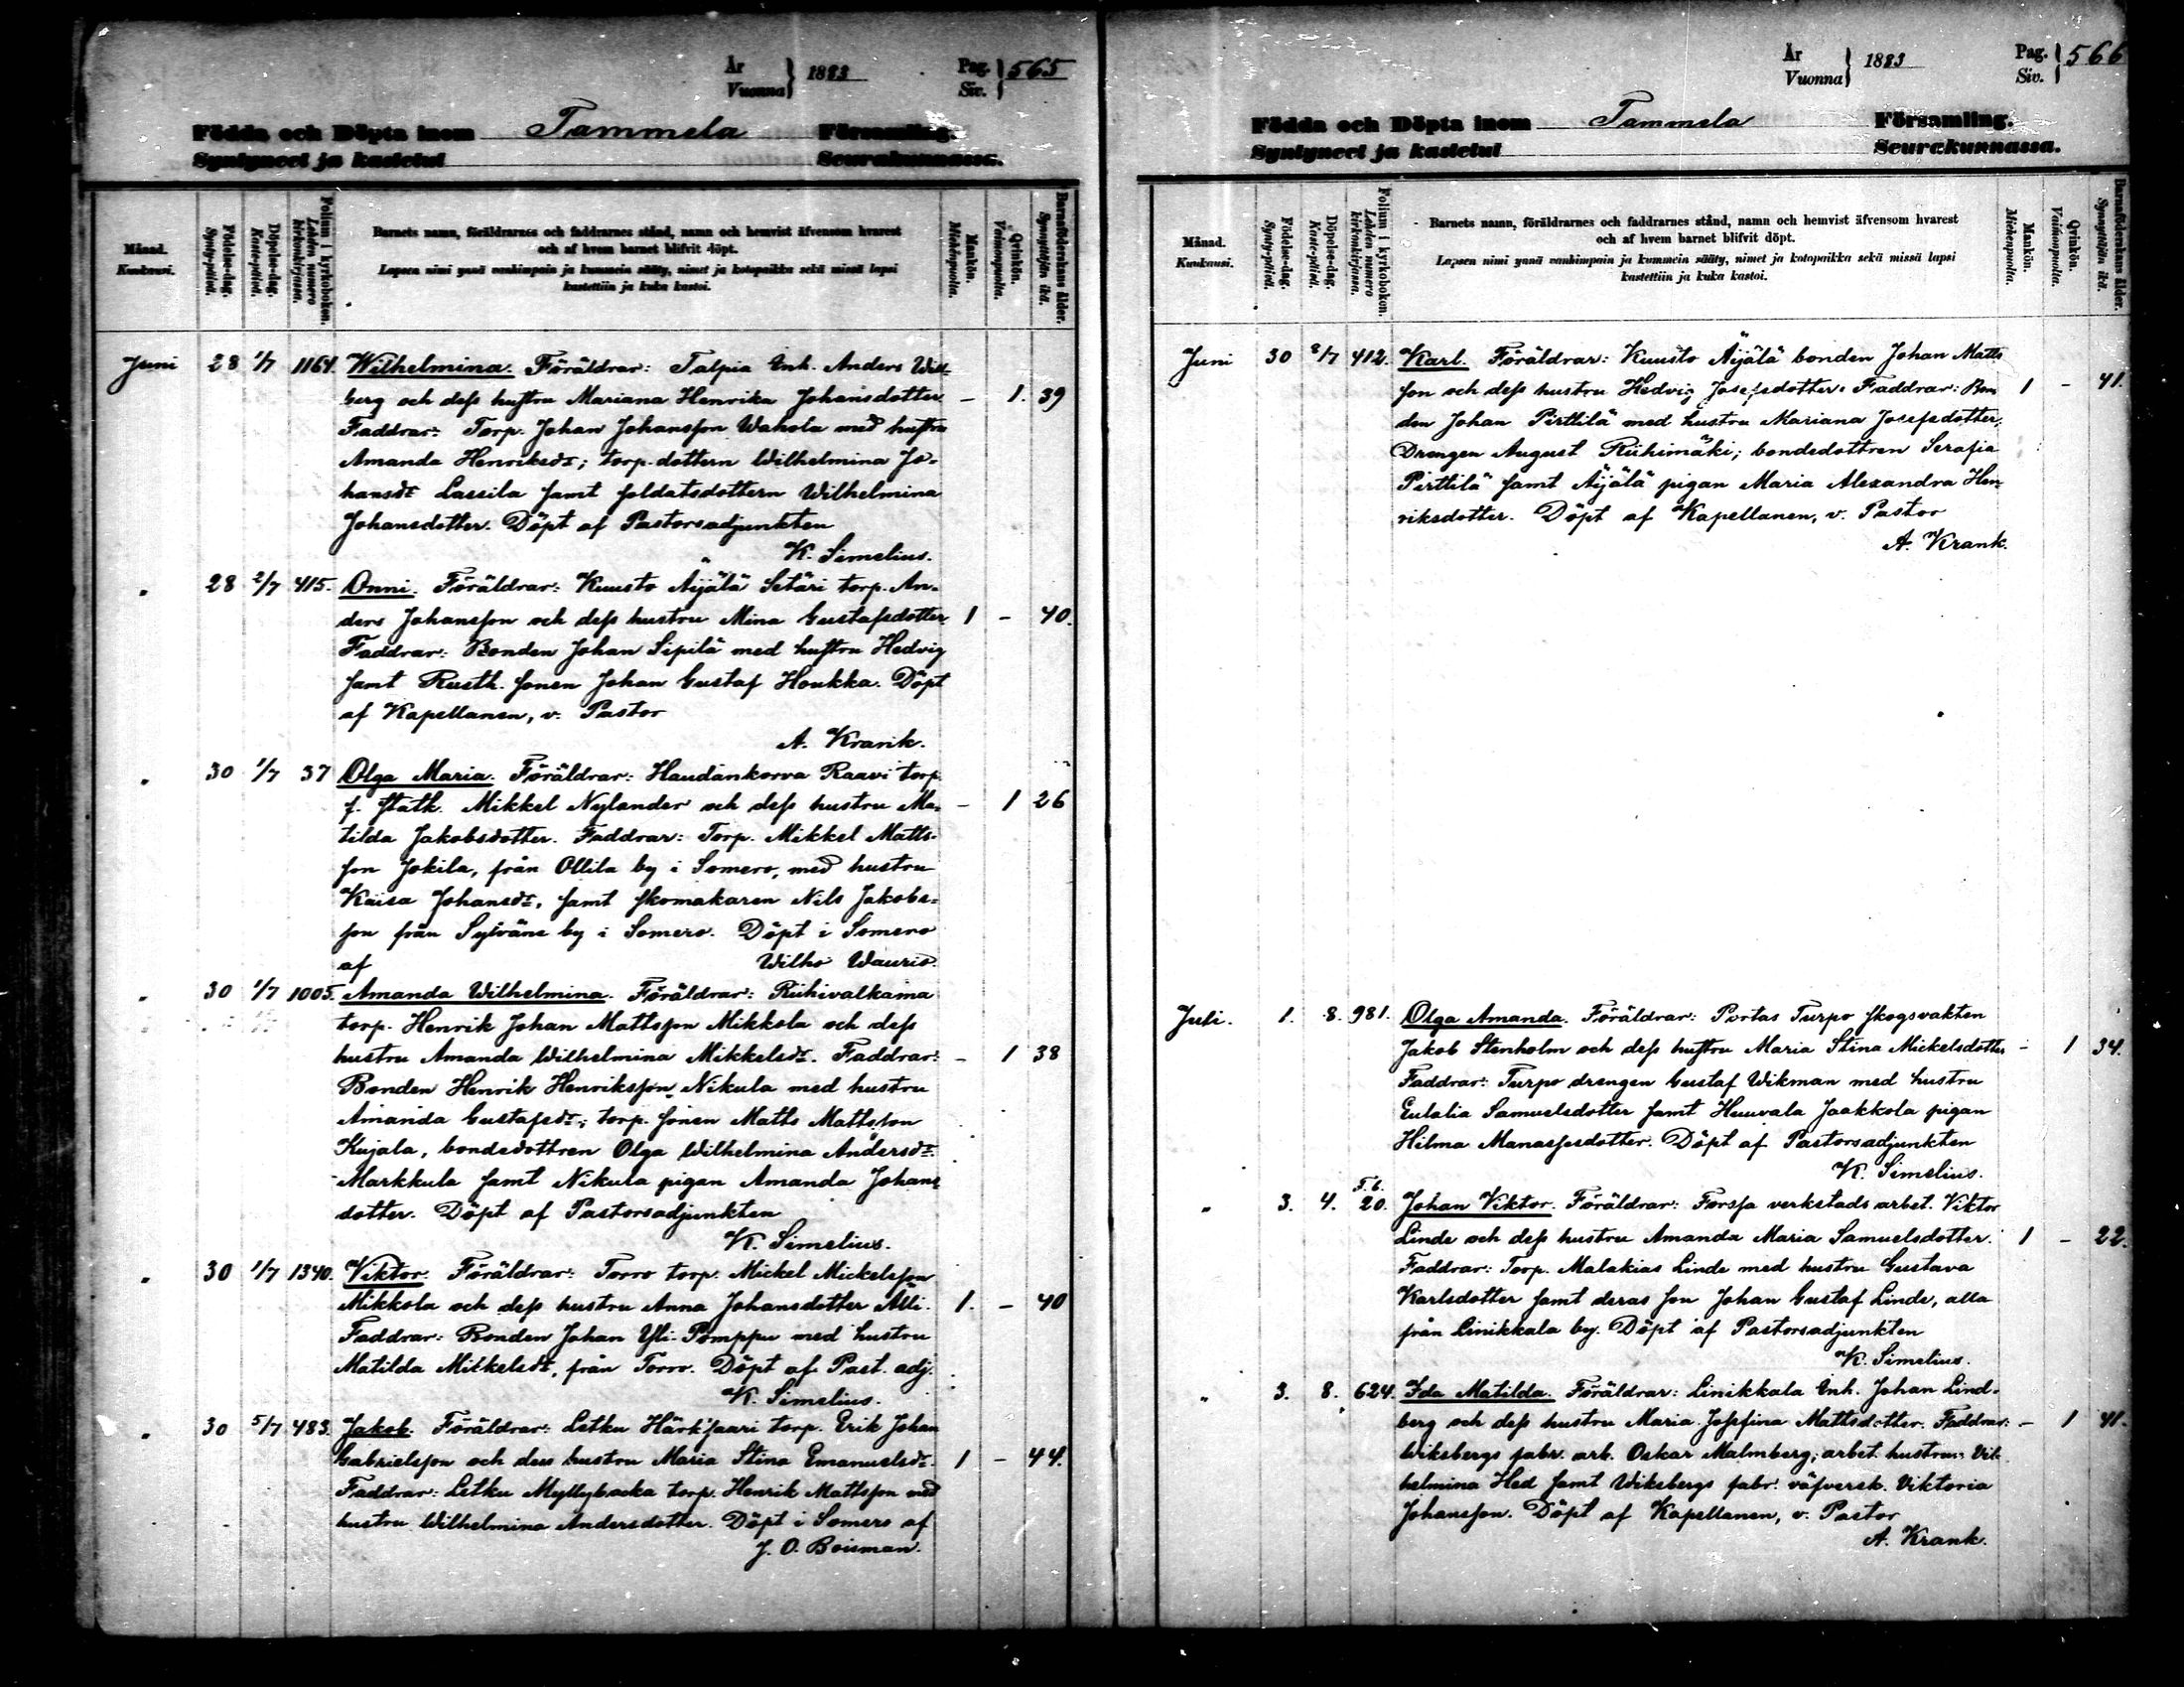 År
Vuonna } 1883
Pag.
Siv. } 565
Födda och Döpta inom Tammela Församling.
Syntyneet ja kastetut Seurakunnassa.
Månad.
Kuukausi.
Födelse-dag.
Synty-päivä.
Döpelse-dag.
Kaste-päivä.
Folium i kyrkoboken.
Lehden numero
kirkonkirjassa.
Barnets namn, föräldrarnes och faddrarnes stånd, namn och hemvist äfvensom hvarest
och af hvem barnet blifvit döpt.
Lapsen nimi ynnä vanhimpain ja kummein sääty, nimet ja kotopaikka sekä missä lapsi
kastettiin ja kuka kastoi.
Mankön.
Miehenpuolta.
Qvinkön.
Vaimonpuolta.
Barnaföderskans ålder.
Synnyttäjän ikä.
Juni 28 1/7 1164. Wilhelmina. Föräldrar: Talpia Enh. Anders Will-
berg och dess hustru Mariana Henrika Johansdotter. – 1. 39
Faddrar: Torp. Johan Johansson Wahola med hustru
Amanda Henriksdr; torp. dottern Wilhelmina Jo-
hansdr Lassila samt soldatsdottern Wilhelmina
Johansdotter. Döpt af Pastorsadjunkten
K. Simelius.
" 28 2/7 415. Onni. Föräldrar: Kuusto Äijälä Setäri torp. An-
ders Johansson och dess hustru Mina Gustafsdotter. 1 – 40.
Faddrar: Bonden Johan Sipilä med hustru Hedvig
samt Rusth. sonen Johan Gustaf Houkka. Döpt
af Kapellanen, v. Pastor
A. Krank.
" 30 1/7 37 Olga Maria. Föräldrar: Haudankorva Raavi torp.
f. stath. Mikkel Nylander och dess hustru Ma- – 1 26
tilda Jakobsdotter. Faddrar: Torp. Mikkel Matts-
son Jokila, från Ollila by i Somero, med hustru
Kaisa Johansdr, samt skomakaren Nils Jakobs-
son från Sylväne by i Somero. Döpt i Somero
af Wilho Waurio.
" 30 1/7 1005. Amanda Wilhelmina. Föräldrar: Riihivalkama
torp. Henrik Johan Mattsson Mikkola och dess
hustru Amanda Wilhelmina Mikkelsdr. Faddrar: – 1 38
Bonden Henrik Henriksson Nikula med hustru
Amanda Gustafsdr; torp. sonen Matts Mattsson
Kujala, bondedottren Olga Wilhelmina Andersdr
Markkula samt Nikula pigan Amanda Johans-
dotter. Döpt af Pastorsadjunkten
K. Simelius.
" 30 1/7 1340. Viktor. Föräldrar: Torro torp. Mickel Mickelsson
Mikkola och dess hustru Anna Johansdotter Alli. 1. – 40
Faddrar: Bonden Johan Yli-Pomppu med hustru
Matilda Mikkelsdr, från Torro. Döpt af Past. adj.
K. Simelius.
" 30 5/7 483. Jakob. Föräldrar: Letku Härksaari torp. Erik Johan
Gabrielsson och dess hustru Maria Stina Emanuelsdr. 1 – 44.
Faddrar: Letku Myllybacka torp. Henrik Mattsson med
hustru Wilhelmina Andersdotter. Döpt i Somero af
J. O. Boisman.
År
Vuonna } 1883
Pag.
Siv. } 566
Födda och Döpta inom Tammela Församling.
Syntyneet ja kastetut Seurakunnassa.
Månad.
Kuukausi.
Födelse-dag.
Synty-päivä.
Döpelse-dag.
Kaste-päivä.
Folium i kyrkoboken.
Lehden numero
kirkonkirjassa.
Barnets namn, föräldrarnes och faddrarnes stånd, namn och hemvist äfvensom hvarest
och af hvem barnet blifvit döpt.
Lapsen nimi ynnä vanhimpain ja kummein sääty, nimet ja kotopaikka sekä missä lapsi
kastettiin ja kuka kastoi.
Mankön.
Miehenpuolta.
Qvinkön.
Vaimonpuolta.
Barnaföderskans ålder.
Synnyttäjän ikä.
Juni 30 8/7 412. Karl. Föräldrar: Kuusto Äijälä bonden Johan Matts
son och dess hustru Hedvig Josefsdotter. Faddrar: Bon 1 – 41.
den Johan Pirttilä med hustru Mariana Josefsdotter.
Drengen August Riihimäki; bondedottren Serafia
Pirttilä samt Äijälä pigan Maria Alexandra Hen-
riksdotter. Döpt af Kapellanen, v. Pastor
A. Krank.
Juli. 1. 8. 981. Olga Amanda. Föräldrar: Portas Turpo skogsvakten
Jakob Stenholm och dess hustru Maria Stina Mickelsdotter – 1 34.
Faddrar: Turpo drengen Gustaf Wikman med hustru
Eulalia Samuelsdotter samt Huuvala Jaakkola pigan
Hilma Manassesdotter. Döpt af Pastorsadjunkten
K. Simelius.
F.b.
" 3. 4. 20. Johan Viktor. Föräldrar: Forssa verkstads arbet. Viktor
Linde och dess hustru Amanda Maria Samuelsdotter. 1 – 22.
Faddrar: Torp. Malakias Linde med hustru Gustava
Karlsdotter samt deras son Johan Gustaf Linde, alla
från Linikkala by. Döpt af Pastorsadjunkten
K. Simelius.
" 3. 8. 624. Ida Matilda. Föräldrar: Linikkala Enh. Johan Lind-
berg och dess hustru Maria Josefina Mattsdotter. Faddrar: – 1 41.
Wiksbergs fabr. arb. Oskar Malmberg; arbet. hustrun Vil-
helmina Hed samt Wiksbergs fabr. väfversk. Viktoria
Johansson. Döpt af Kapellanen, v. Pastor
A. Krank.